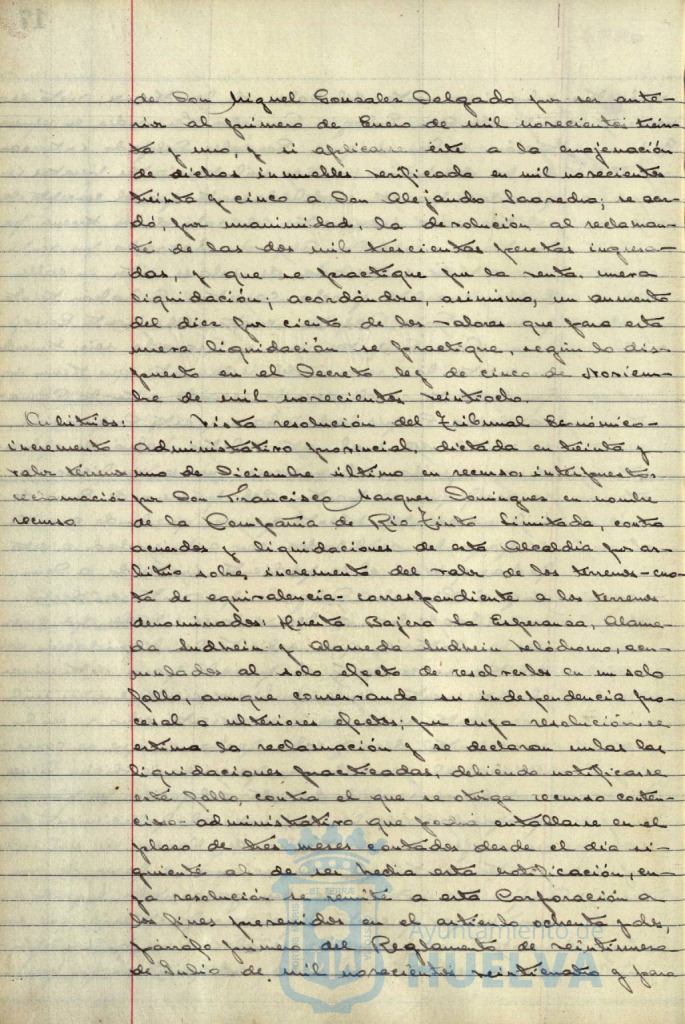 de Don Miguel Gonzalez Delgado por ser ante-
rior al primero de Enero de mil novecientos trein-
ta y uno, y si aplicarse éste a la enajenación
de dichos inmuebles verificada en mil novecientos
treinta y cinco a Don Alejandro Saavedra; se acor-
dó, por unanimidad, la devolución al reclaman-
te de las dos mil trescientas pesetas ingresa-
das, y que se practique por la renta nueva
liquidación; acordándose, asimismo, un aumento
del diez por ciento de los valores que para esta
nueva liquidación se practique, según lo dis-
puesto en el Decreto ley de cinco de Noviem-
bre de mil novecientos veintiocho.
Arbitrios: Vista resolución del Tribunal Económico-
incremento administrativo provincial, dictada en treinta y
valor terrenos uno de Diciembre último en recursos interpuestos
reclamación por Don Francisco Marquez Dominguez en nombre
recurso de la Compañia de Rio Tinto Limitada, contra
acuerdos y liquidaciones de esta Alcaldia por ar-
bitrio sobre incremento del valor de los terrenos-cuo-
ta de equivalencia- correspondiente a los terrenos
denominados: Huerta Bajera la Esperanza, Alame-
da Sudheim y Alameda Sudheim velódromo, acu-
mulados al solo efecto de resolverlos en un solo
fallo, aunque conservando su independencia pro-
cesal a ulteriores efectos; por cuya resolución se
estima la reclamación y se declaran nulas las
liquidaciones practicadas, debiendo notificarse
este fallo, contra el que se otorga recurso conten-
cioso-administrativo que podrá entablarse en el
plazo de tres meses contados desde el dia si-
guiente al de ser hecha esta notificación, cu-
ya resolución se remite a esta Corporación a
los fines prevenidos en el artículo ochenta y dos,
párrafo primero del Reglamento de veintinueve
de Julio de mil novecientos veinticuatro y para
Ayuntamiento de
HUELVA